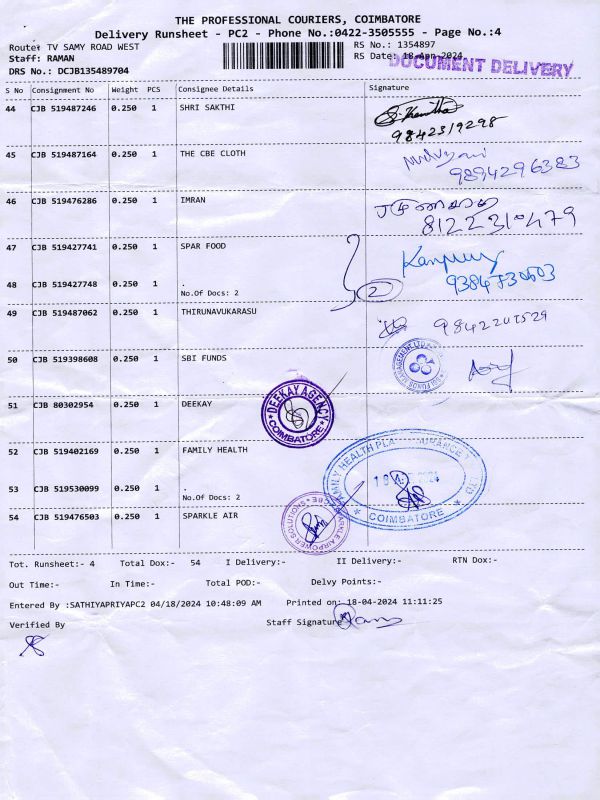 THE PROFESSIONAL COURIERS, COIMBATORE
Delivery Runsheet - PC2 - Phone No.:0422-3505555 - Page No.:4
Route: TV SAMY ROAD WEST
RS No.: 1354897
Staff: RAMAN
RS Date: 18-Apr-2024
DOCUMENT DELIVERY
DRS No.: DCJB135489704
S No Consignment No Weight PCS Consignee Details Signature
44 CJB 519487246 0.250 1 SHRI SAKTHI
9842319298
45 CJB 519487164 0.250 1 THE CBE CLOTH
9894296383
46 CJB 519476286 0.250 1 IMRAN
8122310479
47 CJB 519427741 0.250 1 SPAR FOOD
48 CJB 519427748 0.250 1 .
No.Of Docs: 2
2
49 CJB 519487062 0.250 1 THIRUNAVUKARASU
50 CJB 519398608 0.250 1 SBI FUNDS
SBI FUNDS MANAGEMENT LTD
51 CJB 80302954 0.250 1 DEEKAY
DEEKAY AGENCY
COIMBATORE
52 CJB 519402169 0.250 1 FAMILY HEALTH
FAMILY HEALTH PLA
LTD
2024
COIMBATORE
53 CJB 519530099 0.250 1 .
No.Of Docs: 2
54 CJB 519476503 0.250 1 SPARKLE AIR
SPARKLE AIRPOWER SOLUTIONS
CBE
Tot. Runsheet:- 4 Total Dox:- 54 I Delivery:- II Delivery:- RTN Dox:-
Out Time:- In Time:- Total POD:- Delvy Points:-
Entered By :SATHIYAPRIYAPC2 04/18/2024 10:48:09 AM Printed on: 18-04-2024 11:11:25
Verified By Staff Signature